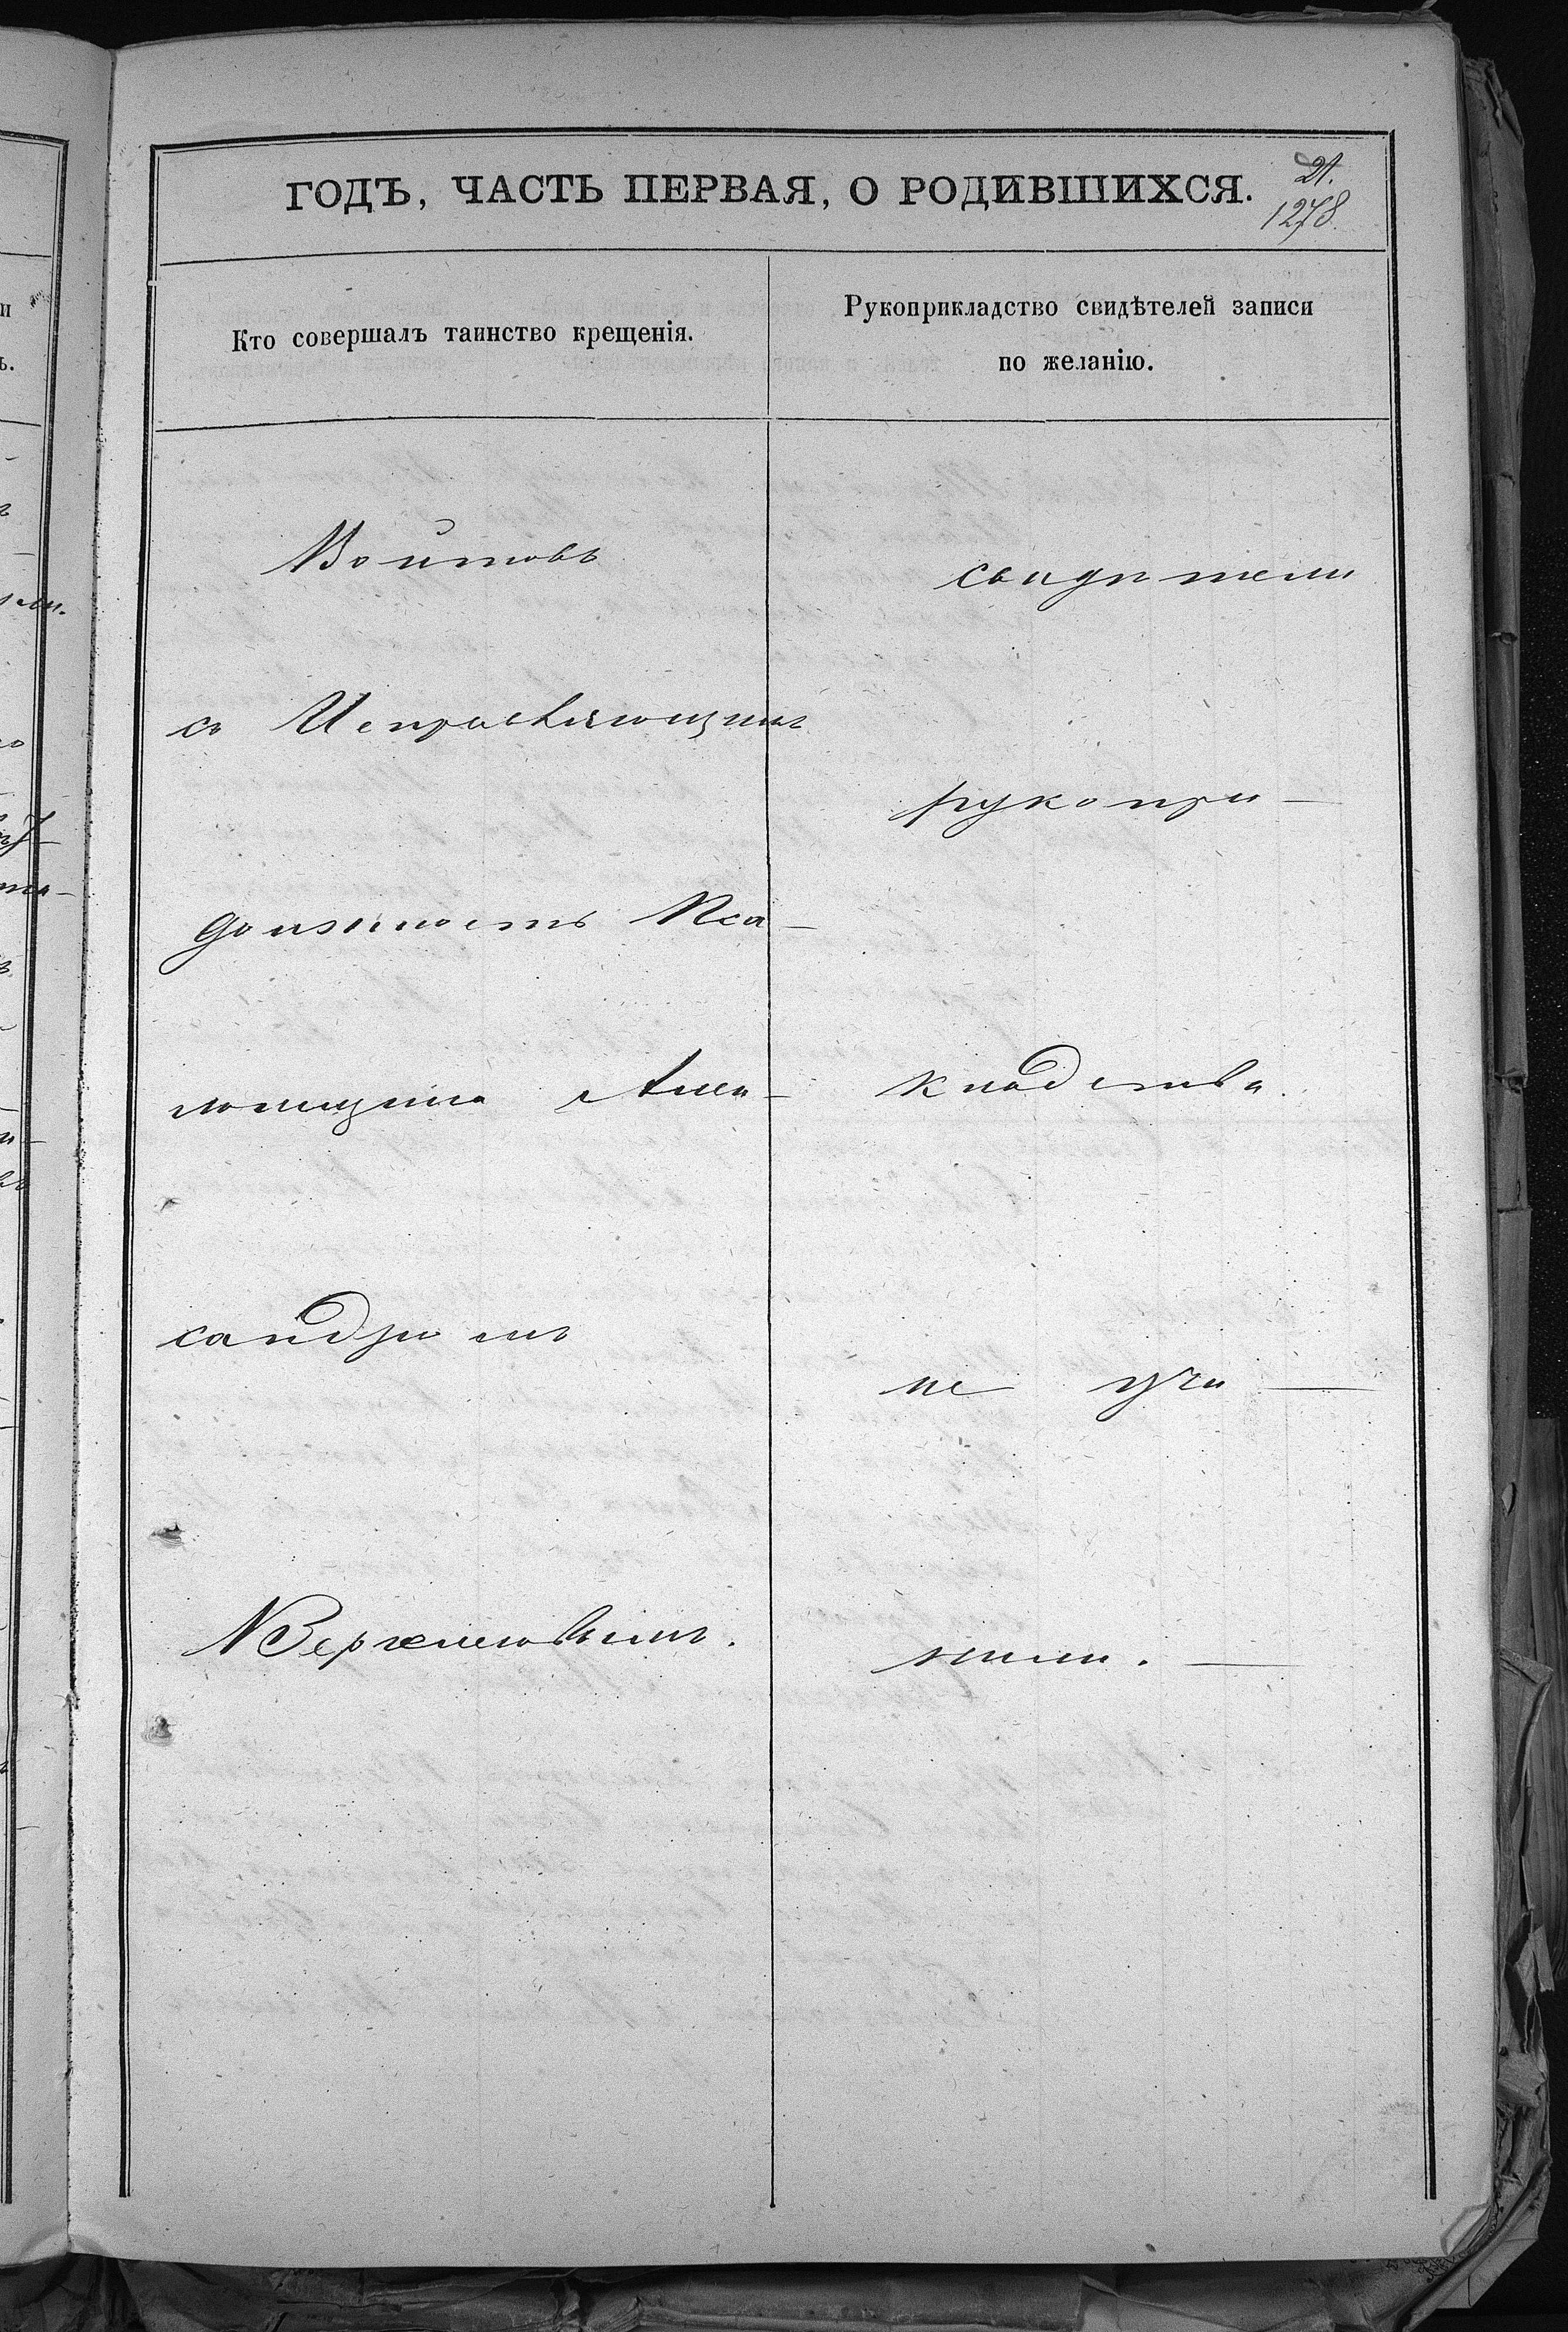 ГОДЪ, ЧАСТЬ ПЕРВАЯ, О РОДИВШИХСЯ.
21.
1278
Кто совершалъ таинство крещенія.
Рукоприкладство свидѣтелей записи
по желанію.
Войтовъ
съ Исправляющимъ
должность Пса-
ломщика Алек-
сандромъ
свидѣтели
рукопри-
кладства
не учи-
нили.